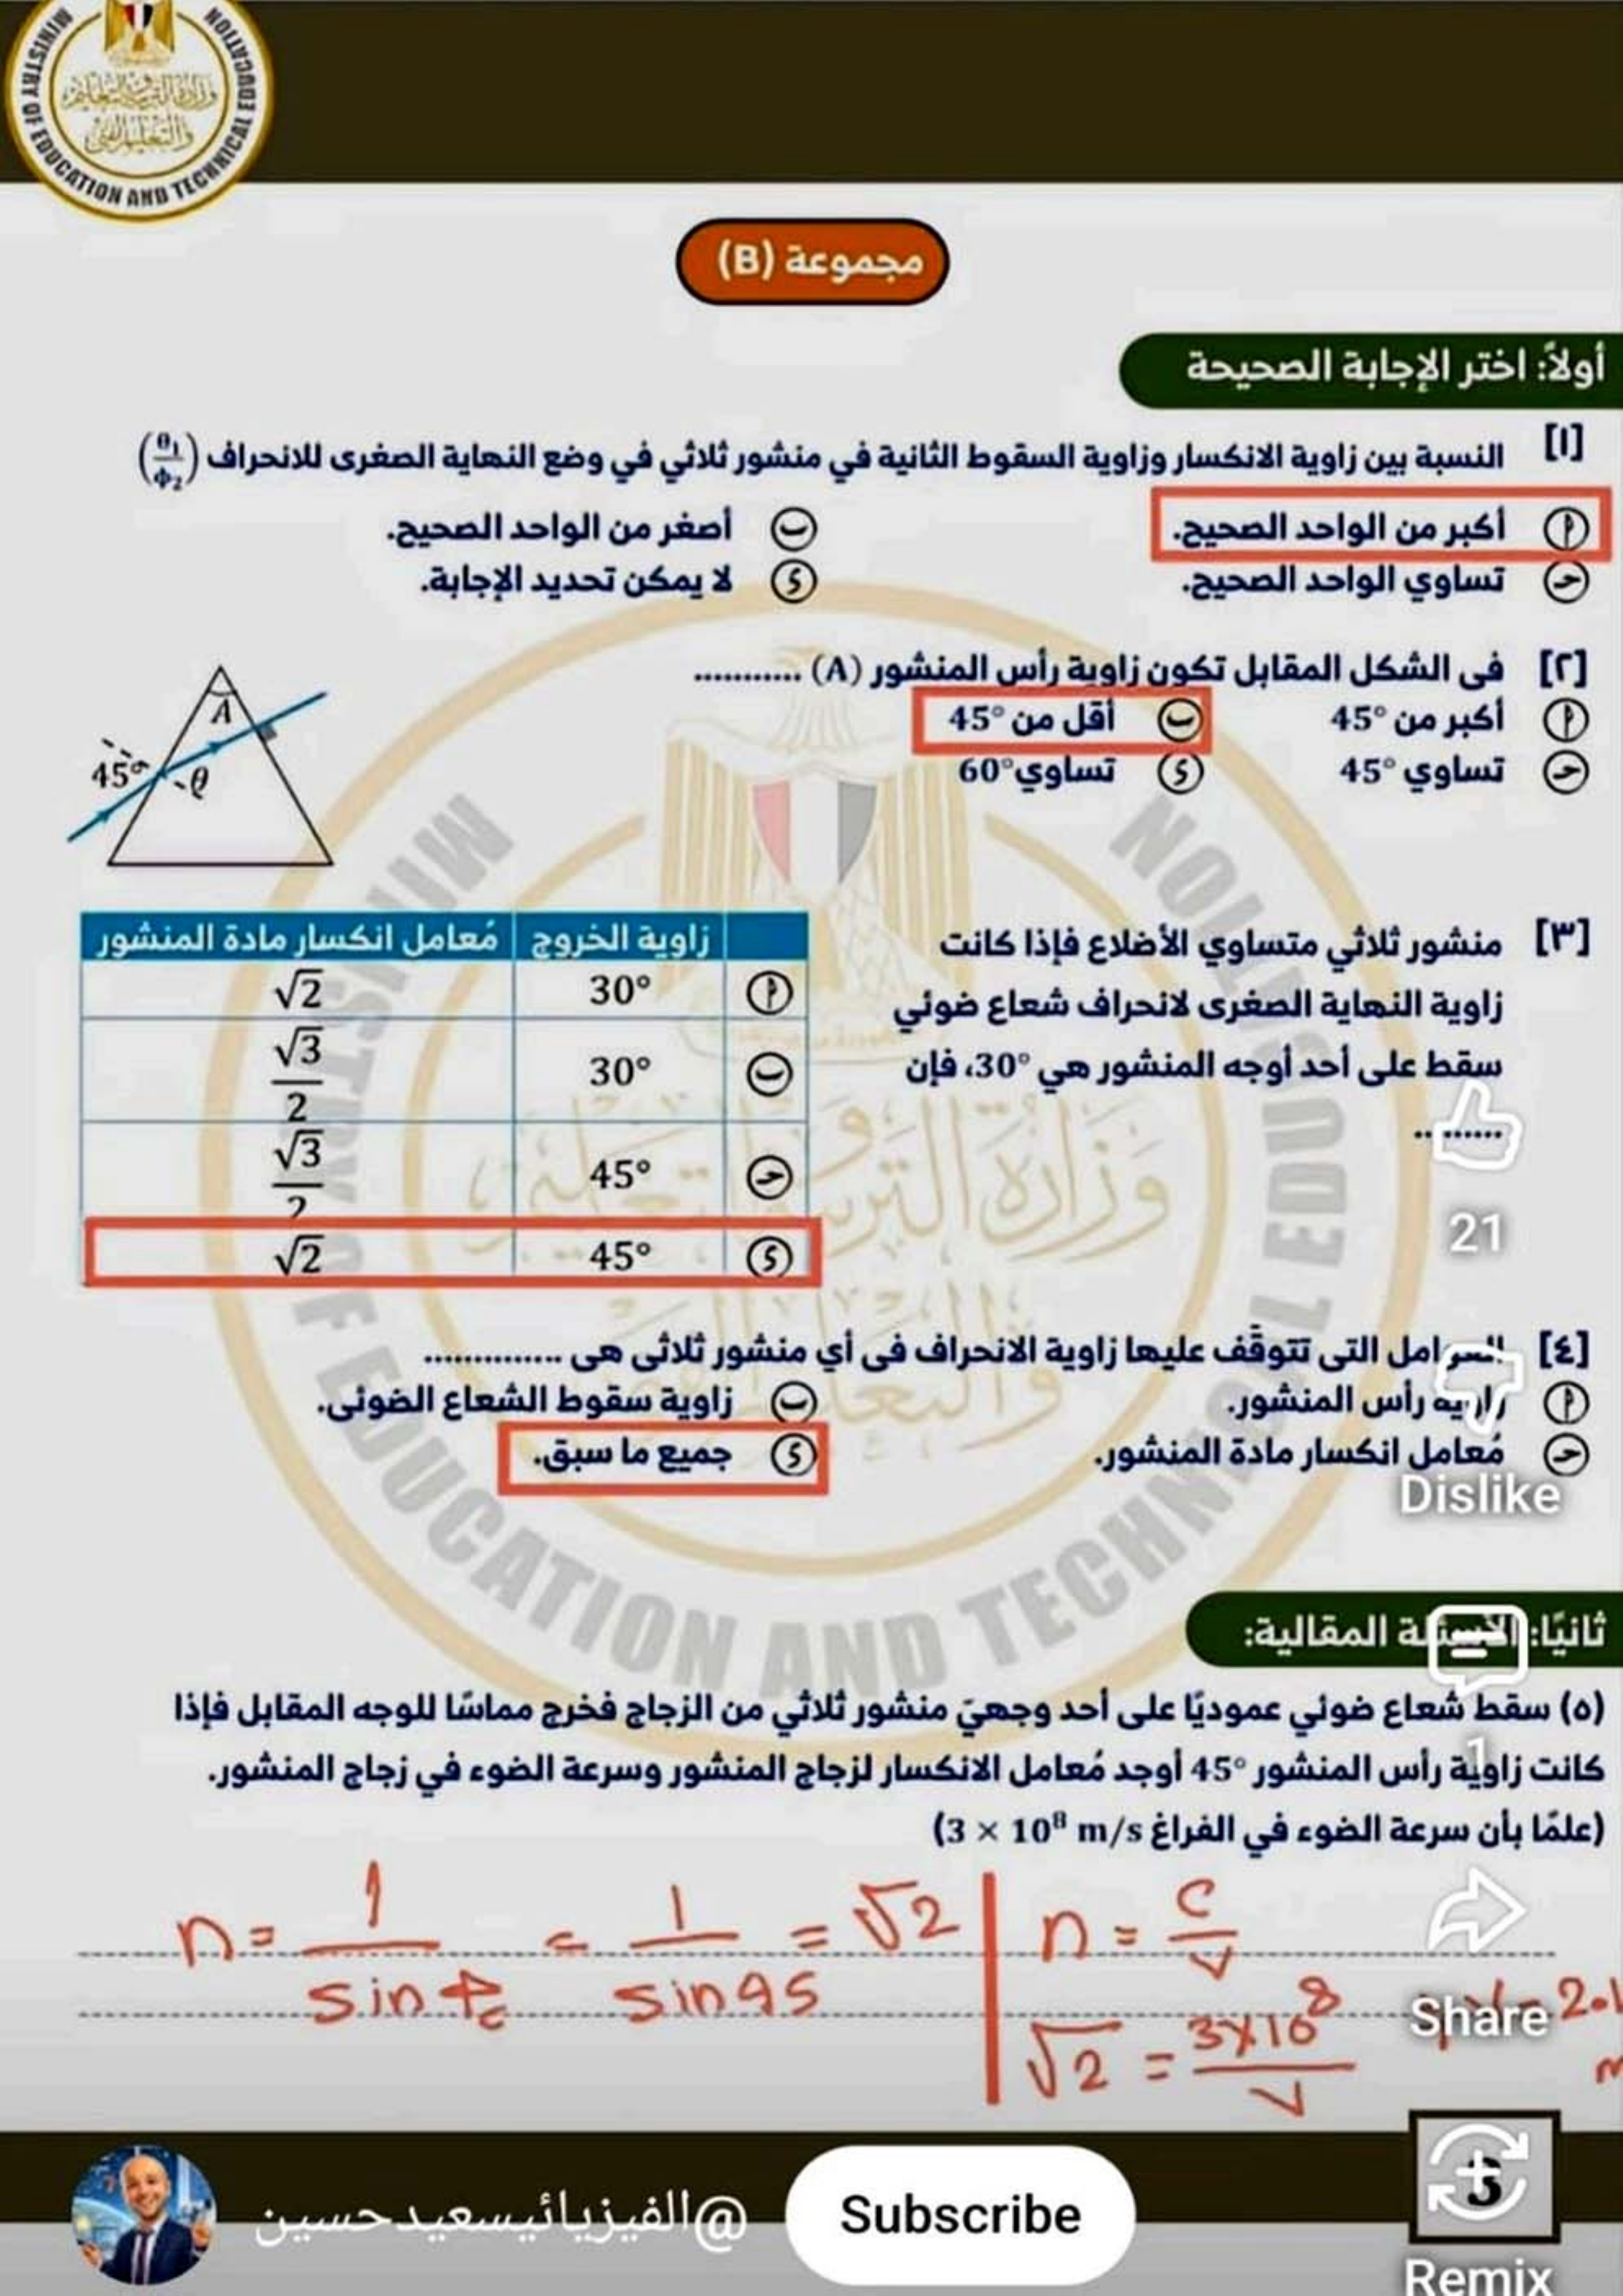 MINISTRY OF EDUCATION AND TECHNICAL EDUCATION
وزارة التربية والتعليم
والتعليم الفني
مجموعة (B)
أولاً: اختر الإجابة الصحيحة
[١] النسبة بين زاوية الانكسار وزاوية السقوط الثانية في منشور ثلاثي في وضع النهاية الصغرى للانحراف (θ₁/ϕ₂)
أ أكبر من الواحد الصحيح. ب أصغر من الواحد الصحيح.
ج تساوي الواحد الصحيح. د لا يمكن تحديد الإجابة.
[٢] فى الشكل المقابل تكون زاوية رأس المنشور (A) ...........
أ أكبر من 45° ب أقل من 45°
ج تساوي 45° د تساوي 60°
A
45°
θ
[٣] منشور ثلاثي متساوي الأضلاع فإذا كانت
زاوية النهاية الصغرى لانحراف شعاع ضوئي
سقط على أحد أوجه المنشور هي 30°، فإن
.........
زاوية الخروج معامل انكسار مادة المنشور
أ 30° √2
ب 30° √3/2
ج 45° √3/2
د 45° √2
[٤] العوامل التى تتوقف عليها زاوية الانحراف فى أي منشور ثلاثى هى ..............
أ زاوية رأس المنشور. ب زاوية سقوط الشعاع الضوئى.
ج مُعامل انكسار مادة المنشور. د جميع ما سبق.
ثانيًا: الأسئلة المقالية:
(٥) سقط شعاع ضوئي عموديًا على أحد وجهيّ منشور ثلاثي من الزجاج فخرج مماسًا للوجه المقابل فإذا
كانت زاوية رأس المنشور 45° أوجد مُعامل الانكسار لزجاج المنشور وسرعة الضوء في زجاج المنشور.
(علمًا بأن سرعة الضوء في الفراغ 3 × 10⁸ m/s)
n = 1/sin ϕc = 1/sin 45 = √2
n = C/V
√2 = 3×10⁸/V
21
Dislike
1
Share
Remix
3
@الفيزيائيسعيدحسين
Subscribe